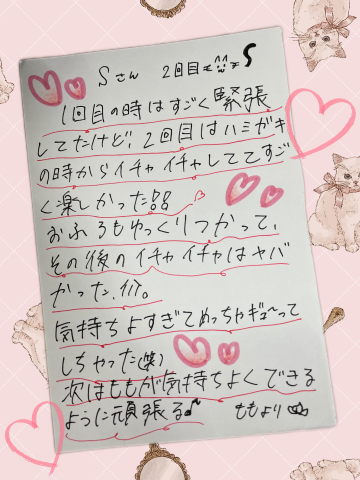 Sさん 2回目 S
1回目の時はすごく緊張
してたけど、2回目はハミガキ
の時からイチャイチャしててすご
く楽しかった
おふろもゆっくりつかって、
その後のイチャイチャはヤバ
かった、
気持ちよすぎてめっちゃギューって
しちゃった(笑)
次はももが気持ちよくできる
ように頑張る♪ ももより